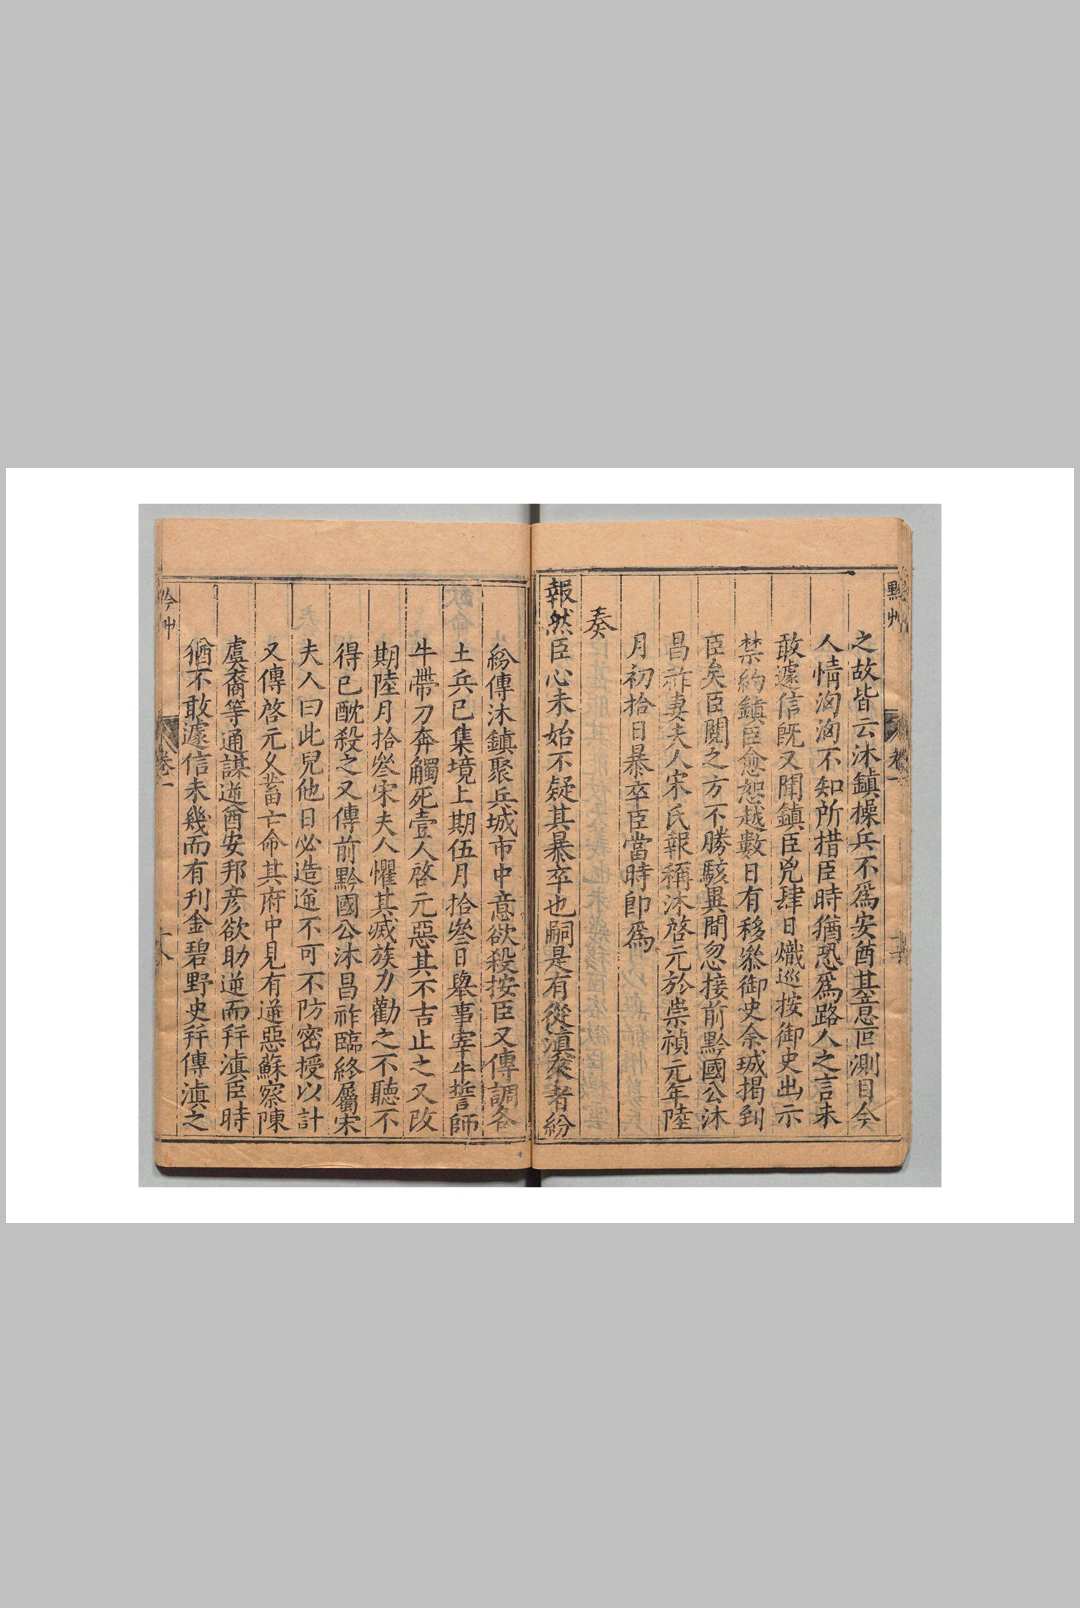 之故皆云沐鎮操兵不爲安酋其意叵測目今
人情洶洶不知所措臣時猶恐爲路人之言未
敢遽信旣又聞鎮臣兇肆日熾巡按御史出示
禁約鎮臣愈恕越數日有移叅御史余瑊揭到
臣矣臣閱之方不勝駭異間忽接前黔國公沐
昌祚妻夫人宋氏報稱沐啓元於崇禎元年陸
月初拾日暴卒臣當時卽爲
奏
報然臣心未始不疑其暴卒也嗣是有從滇來者紛
紛傳沐鎮聚兵城市中意欲殺按臣又傳調各
土兵已集境上期伍月拾叄日舉事宰牛誓師
牛帶刀奔觸死壹人啓元惡其不吉止之又改
期陸月拾叄宋夫人懼其烕族力勸之不聽不
得已酖殺之又傳前黔國公沐昌祚臨終屬宋
夫人曰此兒他日必造逆不可不防密授以計
又傳啓元久蓄亡命其府中見有逆惡蘇察陳
虞裔等通謀逆酋安邦彦欲助逆而幷滇臣時
猶不敢遽信未幾而有刋金碧野史幷傳滇之
卷一